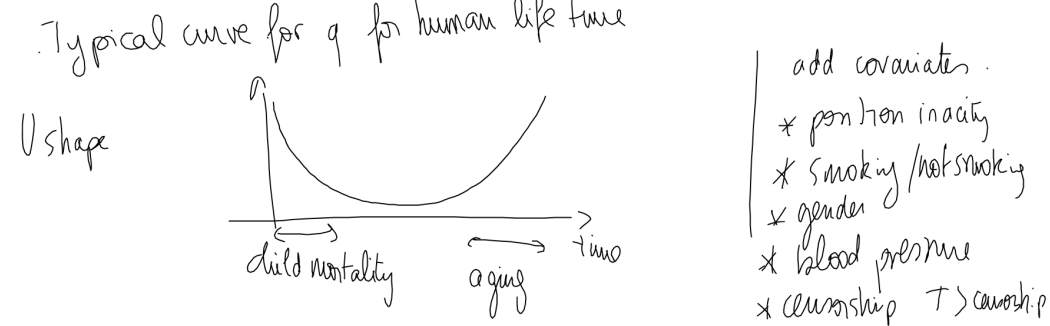 Typical curve for q for human life time
U shape
time
child mortality
aging
add covariates.
* position in a city
* smoking / not smoking
* gender
* blood pressure
* censorship T > censorship